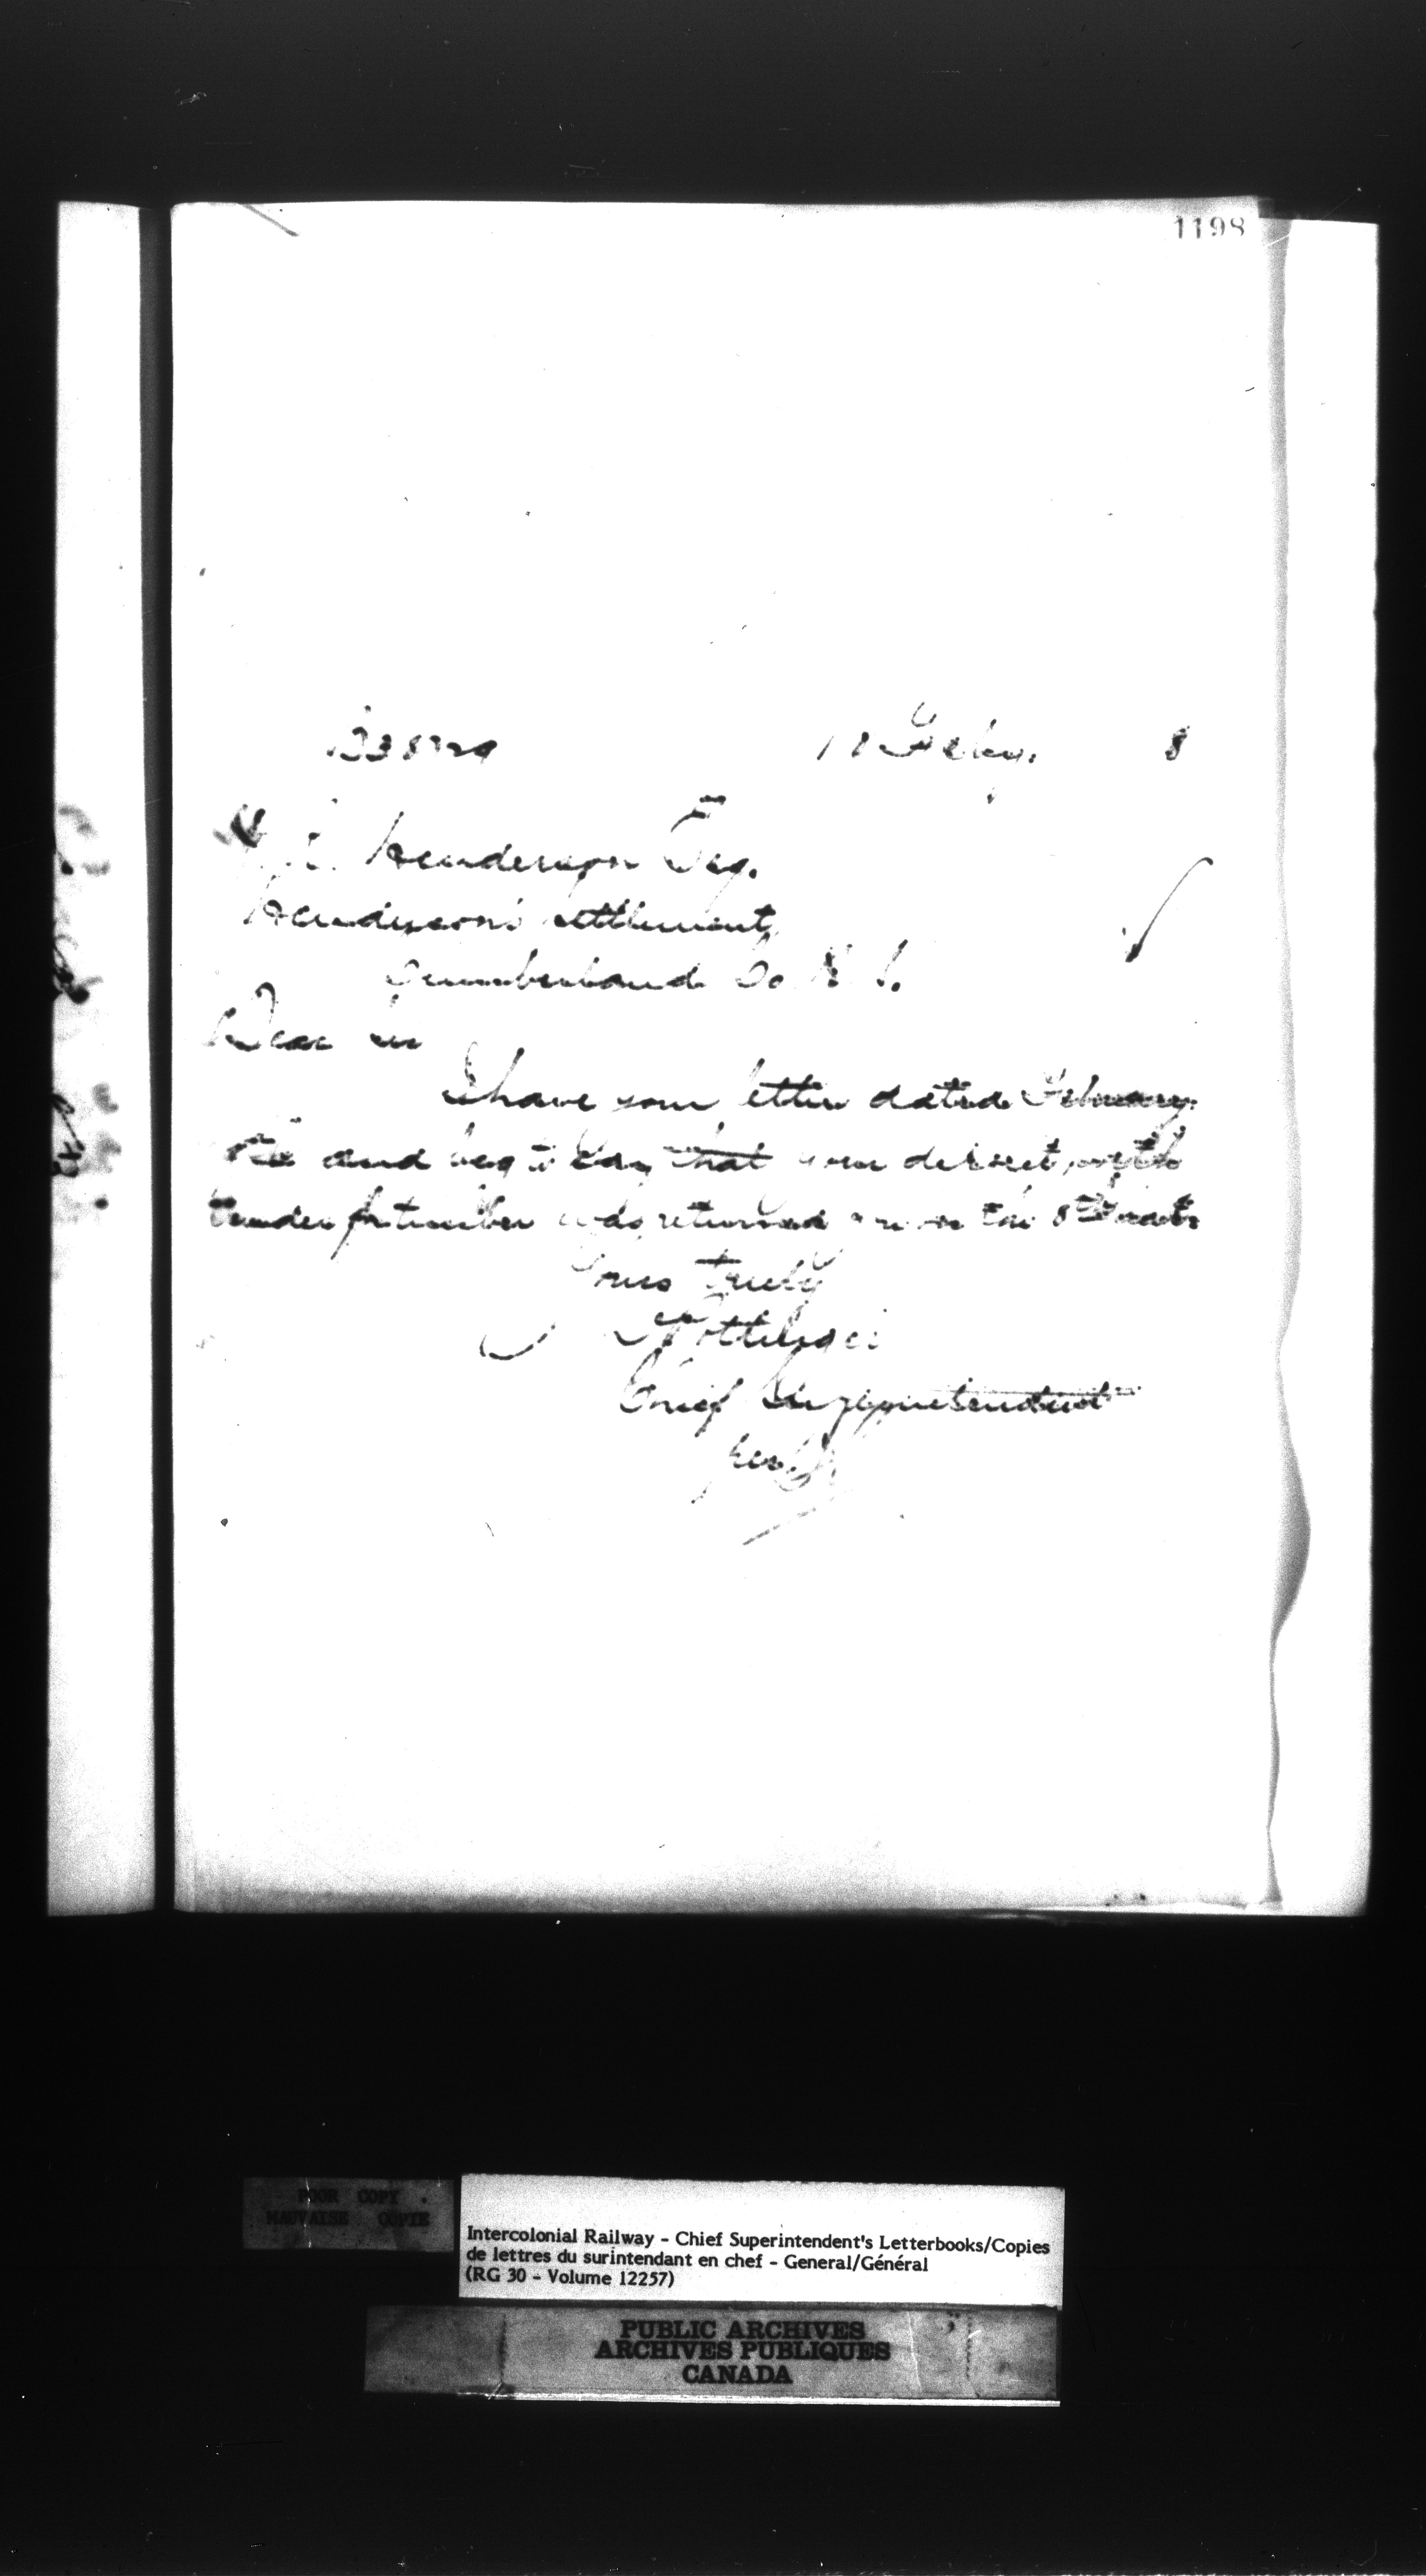 1198
18 Feby. 8
Henderson Esq.
Henderson's Settlement
Cumberland Co. N.S.
Dear Sir
I have your letter dated February
and beg to say that your deposit with
tender for timber was returned on the 8th inst.
Yours truly
Pottinger
Chief Superintendent
POOR COPY
MAUVAISE COPIE
Intercolonial Railway - Chief Superintendent's Letterbooks/Copies
de lettres du surintendant en chef - General/Général
(RG 30 - Volume 12257)
PUBLIC ARCHIVES
ARCHIVES PUBLIQUES
CANADA